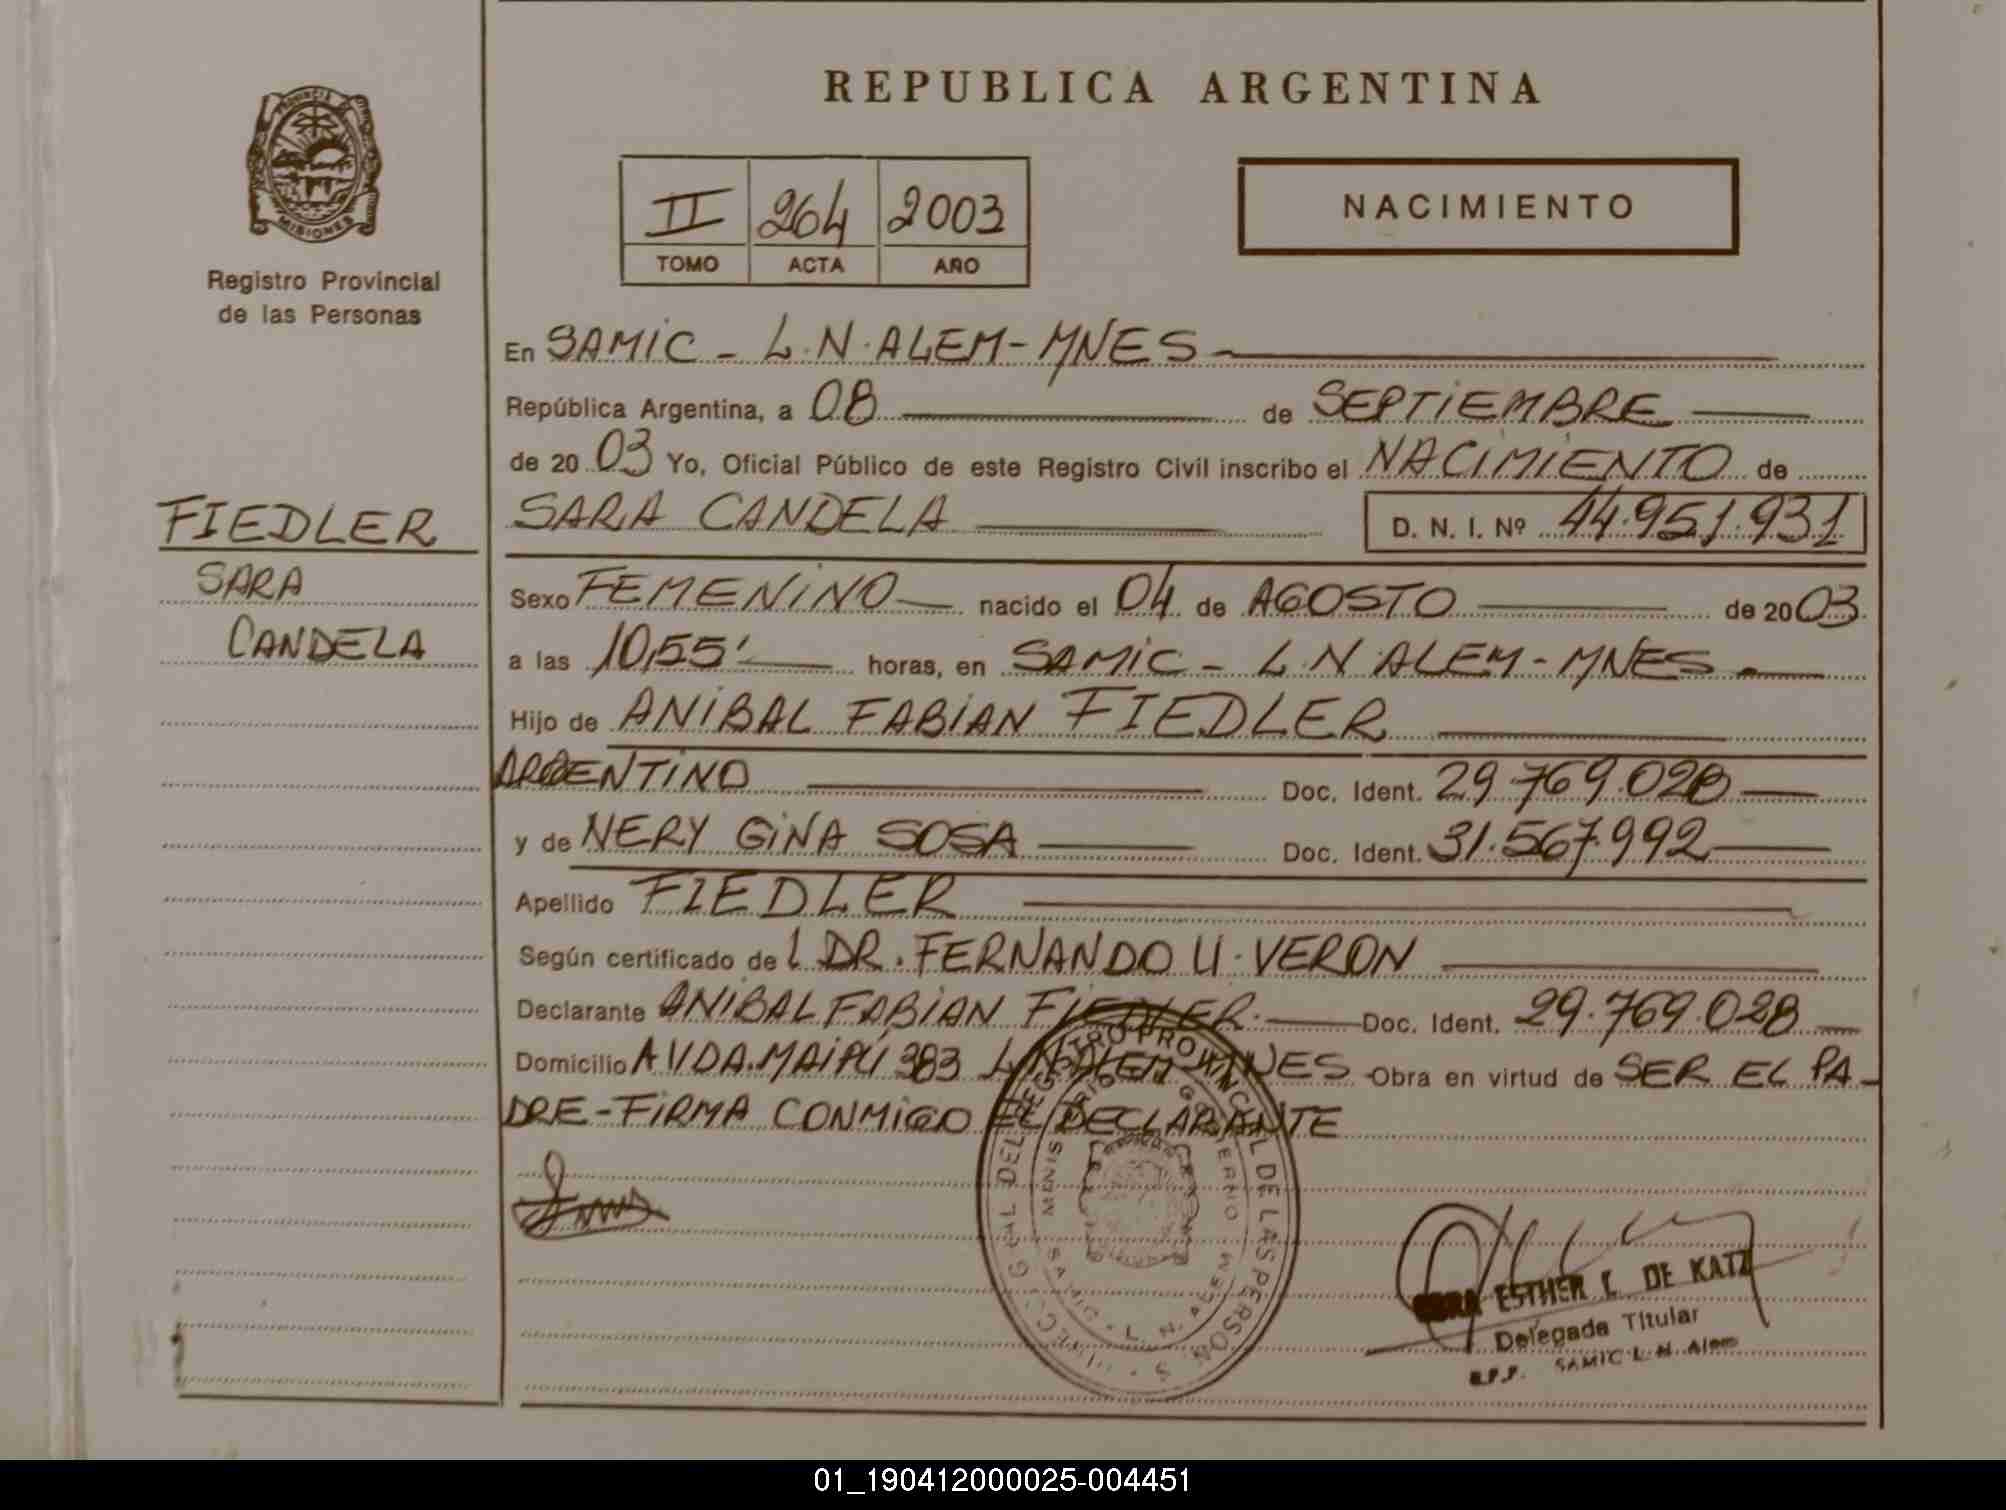 REPUBLICA ARGENTINA
PROVINCIA
MISIONES
Registro Provincial
de las Personas
II 264 2003
TOMO ACTA AÑO
NACIMIENTO
En SAMIC - L.N.ALEM-MNES
República Argentina, a 08 de SEPTIEMBRE
de 20 03 Yo, Oficial Público de este Registro Civil inscribo el NACIMIENTO de
FIEDLER
SARA
CANDELA
SARA CANDELA D. N. I. Nº 44.951.931
Sexo FEMENINO nacido el 04 de AGOSTO de 2003
a las 10,55' horas, en SAMIC - L.N.ALEM - MNES
Hijo de ANIBAL FABIAN FIEDLER
ARGENTINO Doc. Ident. 29.769.028
y de NERY GINA SOSA Doc. Ident. 31.567.992
Apellido FIEDLER
Según certificado del DR. FERNANDO U. VERON
Declarante ANIBAL FABIAN FIEDLER Doc. Ident. 29.769.028
Domicilio AVDA.MAIPÚ 383 L.N.ALEM MNES Obra en virtud de SER EL PA-
DRE-FIRMA CONMIGO EL DECLARANTE
ESTHER L. DE KATZ
Delegada Titular
R.P.P. SAMIC L. N. Alem
01_190412000025-004451